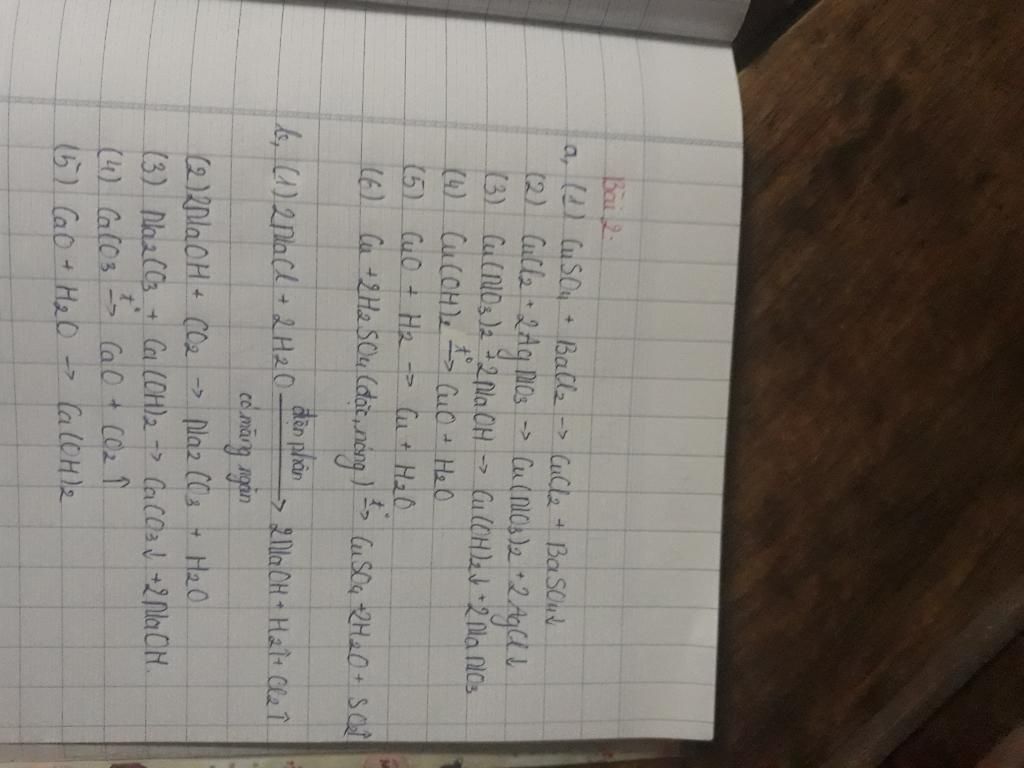 Bài 2:
a, (1) CuSO4 + BaCl2 -> CuCl2 + BaSO4↓
(2) CuCl2 + 2AgNO3 -> Cu(NO3)2 + 2AgCl↓
(3) Cu(NO3)2 + 2NaOH -> Cu(OH)2↓ + 2NaNO3
(4) Cu(OH)2 -t°-> CuO + H2O
(5) CuO + H2 -> Cu + H2O
(6) Cu + 2H2SO4 (đặc, nóng) -t°-> CuSO4 + 2H2O + SO2↑
b, (1) 2NaCl + 2H2O -điện phân-> 2NaOH + H2↑ + Cl2↑
có màng ngăn
(2) 2NaOH + CO2 -> Na2CO3 + H2O
(3) Na2CO3 + Ca(OH)2 -> CaCO3↓ + 2NaOH.
(4) CaCO3 -t°-> CaO + CO2↑
(5) CaO + H2O -> Ca(OH)2